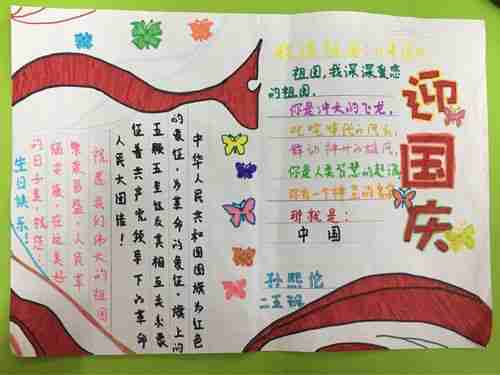 迎国庆
祖国，我深深爱恋
的祖国，
你是冲天的飞龙，
舞动神州的雄风，
你是人类智慧的起源，
你有一个神圣的名字
那就是：
中国
二五班
中华人民共和国国旗为红色
的象征，为革命的象征。旗上的
五颗五星及其相互关系象
征着共产党领导下的革命
人民大团结！
祝愿我们伟大的祖国
繁荣昌盛，人民幸
福安康，在这美好
的日子里，祝您：
生日快乐！